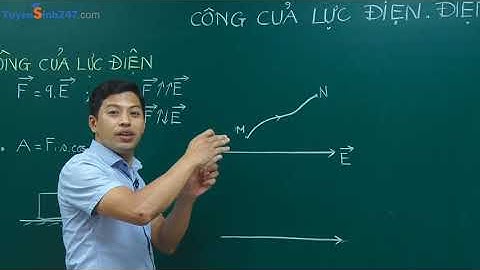 TuyenSinh247.com
CÔNG CUẢ LỰC ĐIỆN. ĐIỆ
ÔNG CUẢ LỰC ĐIỆN
F⃗ = q.E⃗ F⃗↑↑E⃗
F⃗↑↓E⃗
M N
A = F.s.cos
E⃗